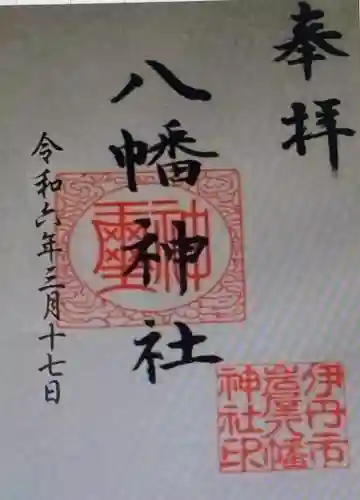 奉拝
八幡神社
令和六年三月十七日
神璽
伊丹市
岩屋八幡
神社印